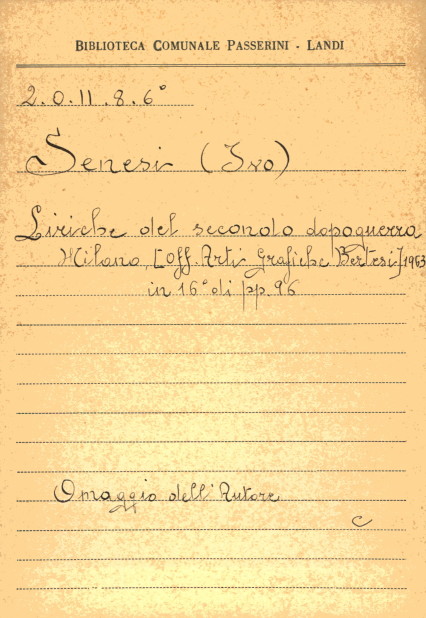 BIBLIOTECA COMUNALE PASSERINI - LANDI
2.O.II.8.6°
Senesi (Ivo)
Liriche del secondo dopoguerra
Milano, [Off. Arti Grafiche Bertesi] 1963
in 16° di pp. 96
Omaggio dell'Autore
C